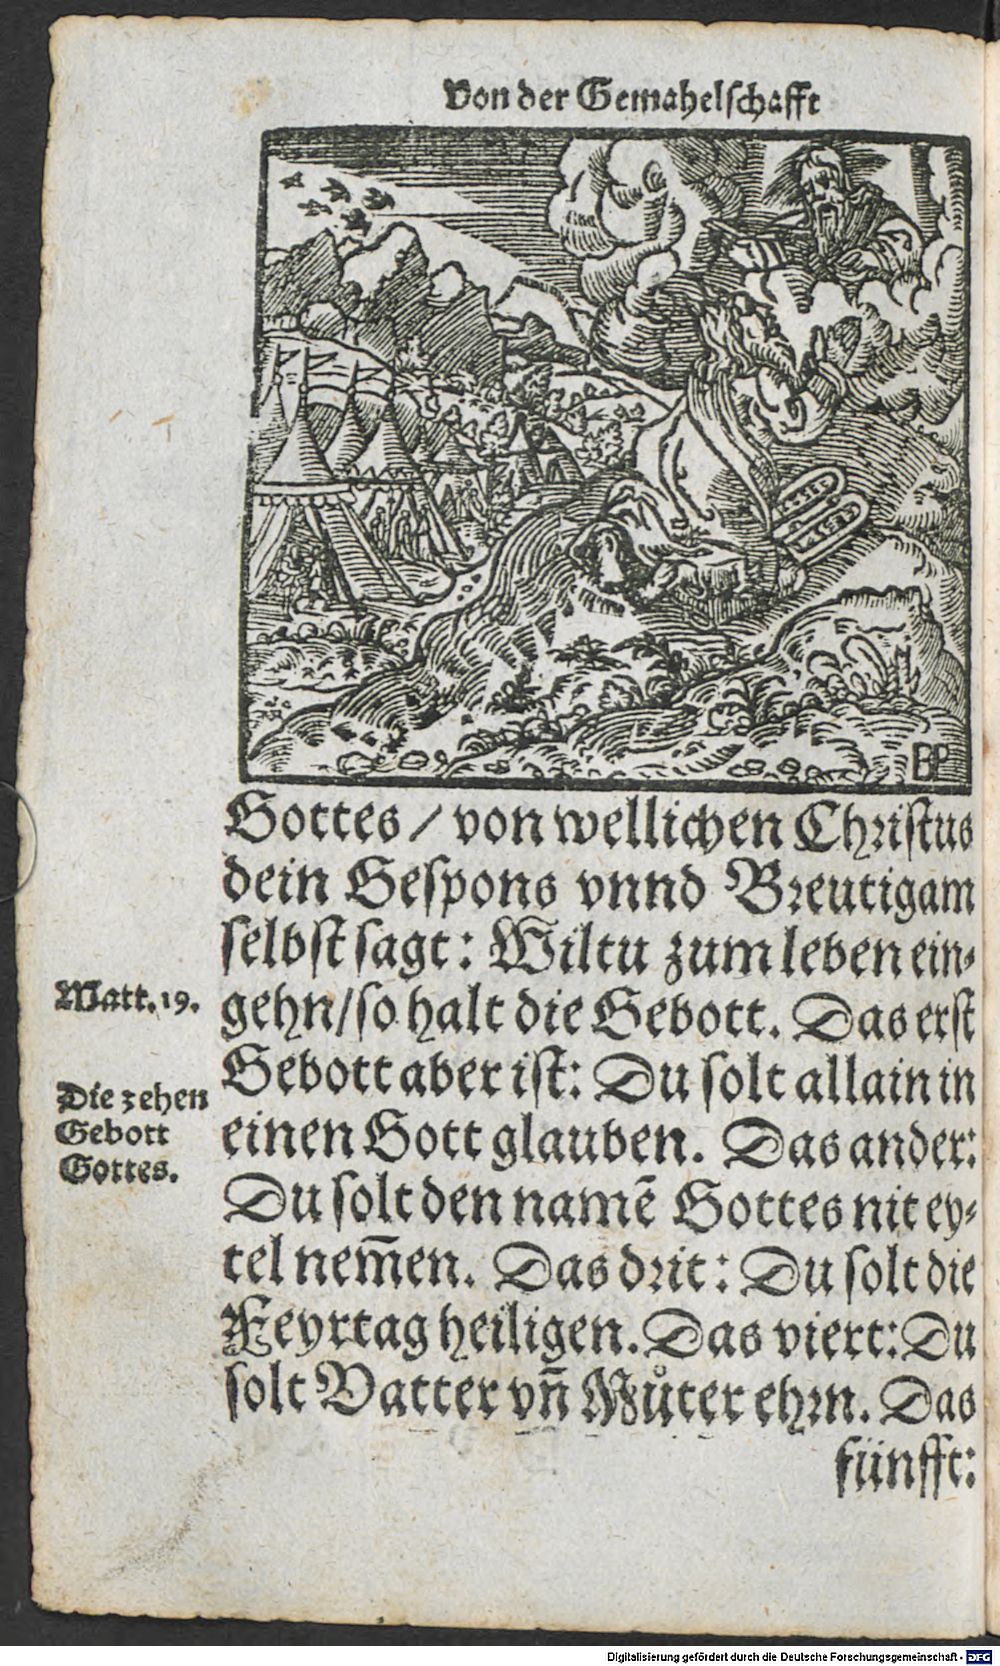 Von der Gemahelschafft
BP
Gottes / von wellichen Christus
dein Gespons vnnd Breutigam
selbst sagt: Wiltu zum leben ein-
Matt. 19.
gehn / so halt die Gebott. Das erst
Gebott aber ist: Du solt allain in
Die zehen
Gebott
Gottes.
einen Gott glauben. Das ander:
Du solt den namē Gottes nit ey-
tel nem̄en. Das drit: Du solt die
Feyrtag heiligen. Das viert: Du
solt Vatter vn̄ Můter ehrn. Das
fünfft:
Digitalisierung gefördert durch die Deutsche Forschungsgemeinschaft - DFG